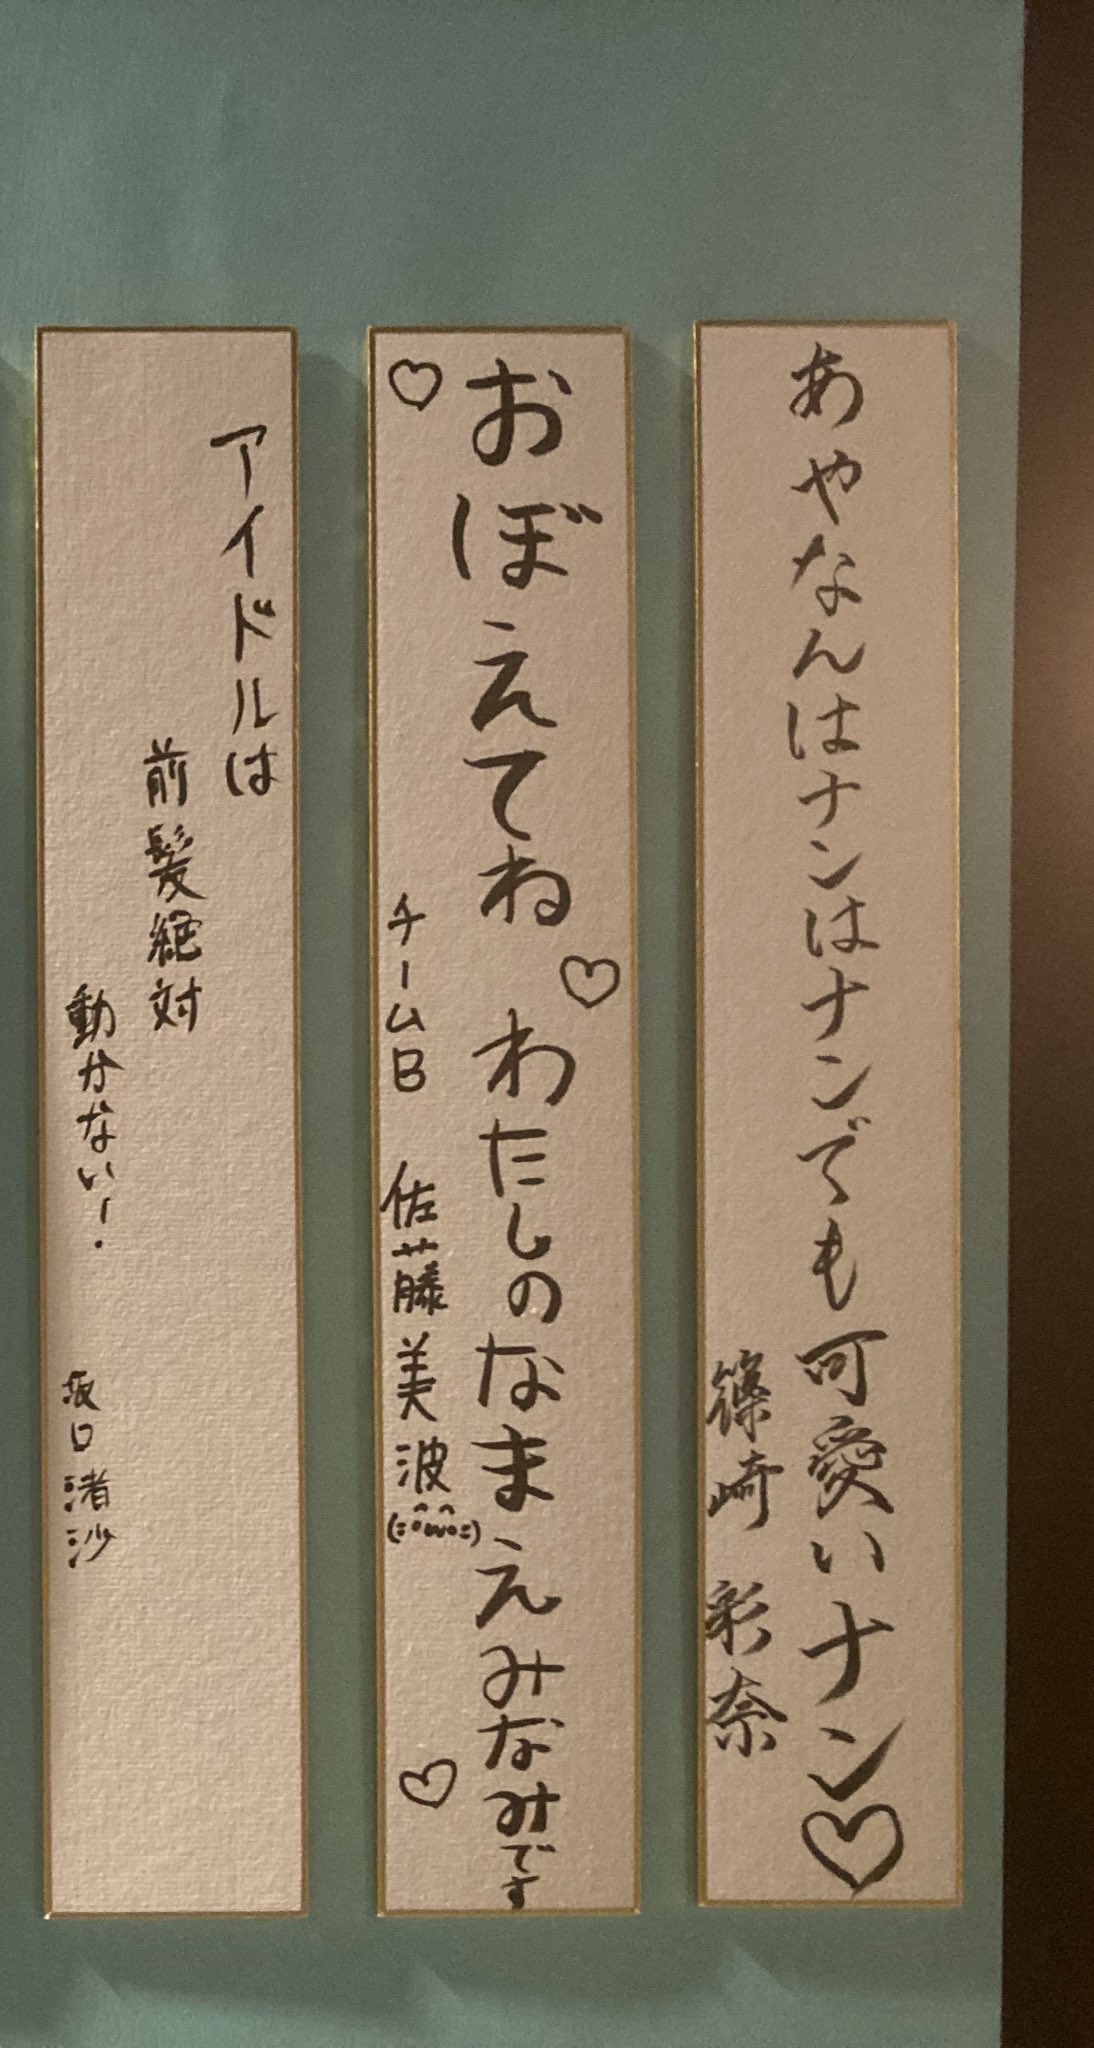 あやなんはナンはナンでも可愛いナン♡
篠崎 彩奈
♡おぼえてね♡わたしのなまえみなみです
チームB 佐藤美波(:ˆ•ω•ˆ:)♡
アイドルは
前髪絶対
動かない!
坂口渚沙